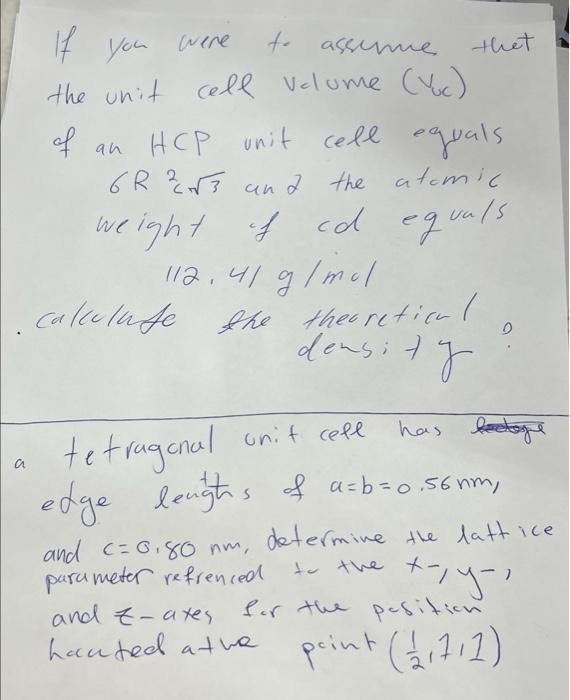 If you were to assume thet
the unit cell volume (Vuc)
of an HCP unit cell equals
6R²c√3 and the atomic
weight of cd equals
112.41 g/mol
. calculate the theoretical
density ?
a tetragonal unit cell has
edge lengths of a=b=0.56nm,
and c=0.80 nm, determine the lattice
parameter refrenced to the x-, y-,
and z-axes for the position
at the point (1/2,1,1)